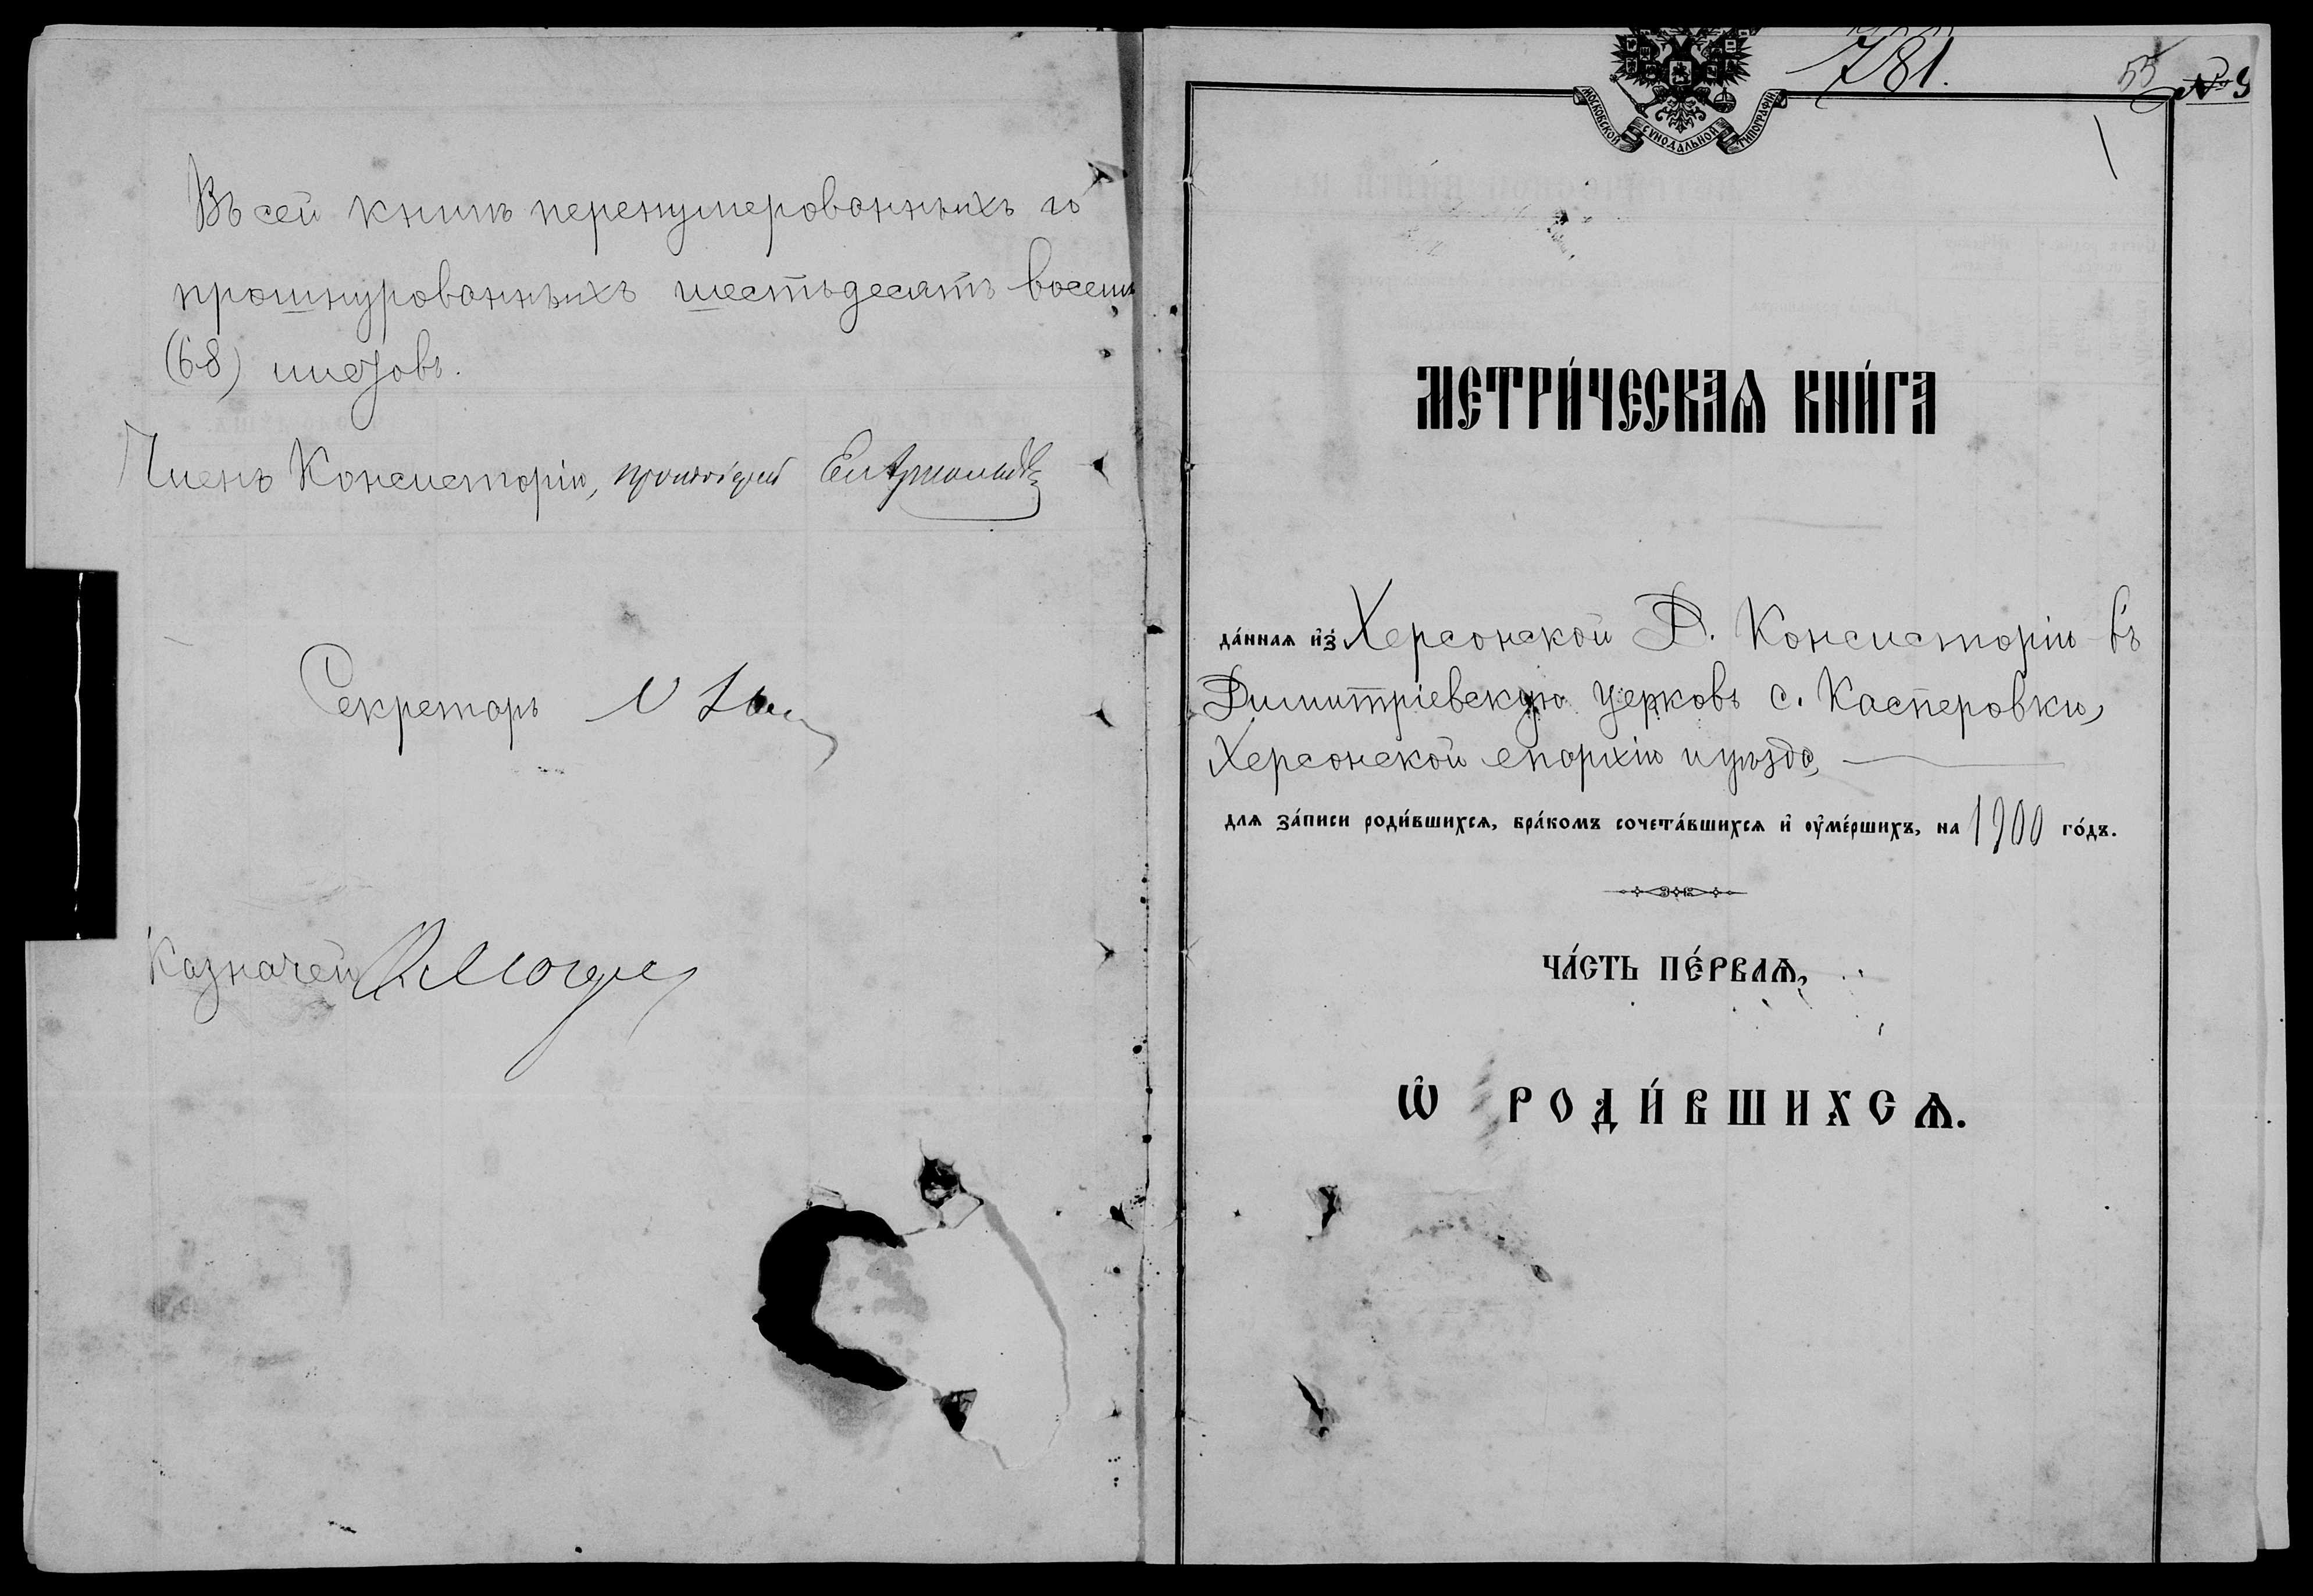 Въ сей книгѣ перенумерованныхъ и
прошнурованныхъ шестьдесятъ восемь
(68) листовъ.
Членъ Консисторіи, протоіерей
Секретарь
Казначей
781.
55 № 9
1
МОСКОВСКОЙ СѴНОДАЛЬНОЙ ТИПОГРАФІИ
МЕТРИ́ЧЕСКАѦ КНИ́ГА
да́ннаѧ и҆з̾ Херсонской Д. Консисторіи въ
Димитріевскую церковь с. Касперовки,
Херсонской епархіи и уѣзда,
длѧ за́писи роди́вшихсѧ, бра́комъ сочета́вшихсѧ и҆ ᲂу҆ме́ршихъ, на 1900 го́дъ.
ЧА́СТЬ ПЕ́РВАѦ,
Ѽ РОДИ́ВШИХСѦ.